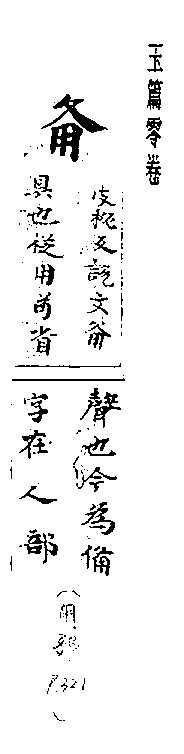 玉篇零卷
𤰈
皮秘反說文𤰈
具也從用苟省
聲也今為俻
字在人部
(用部
P.321
)